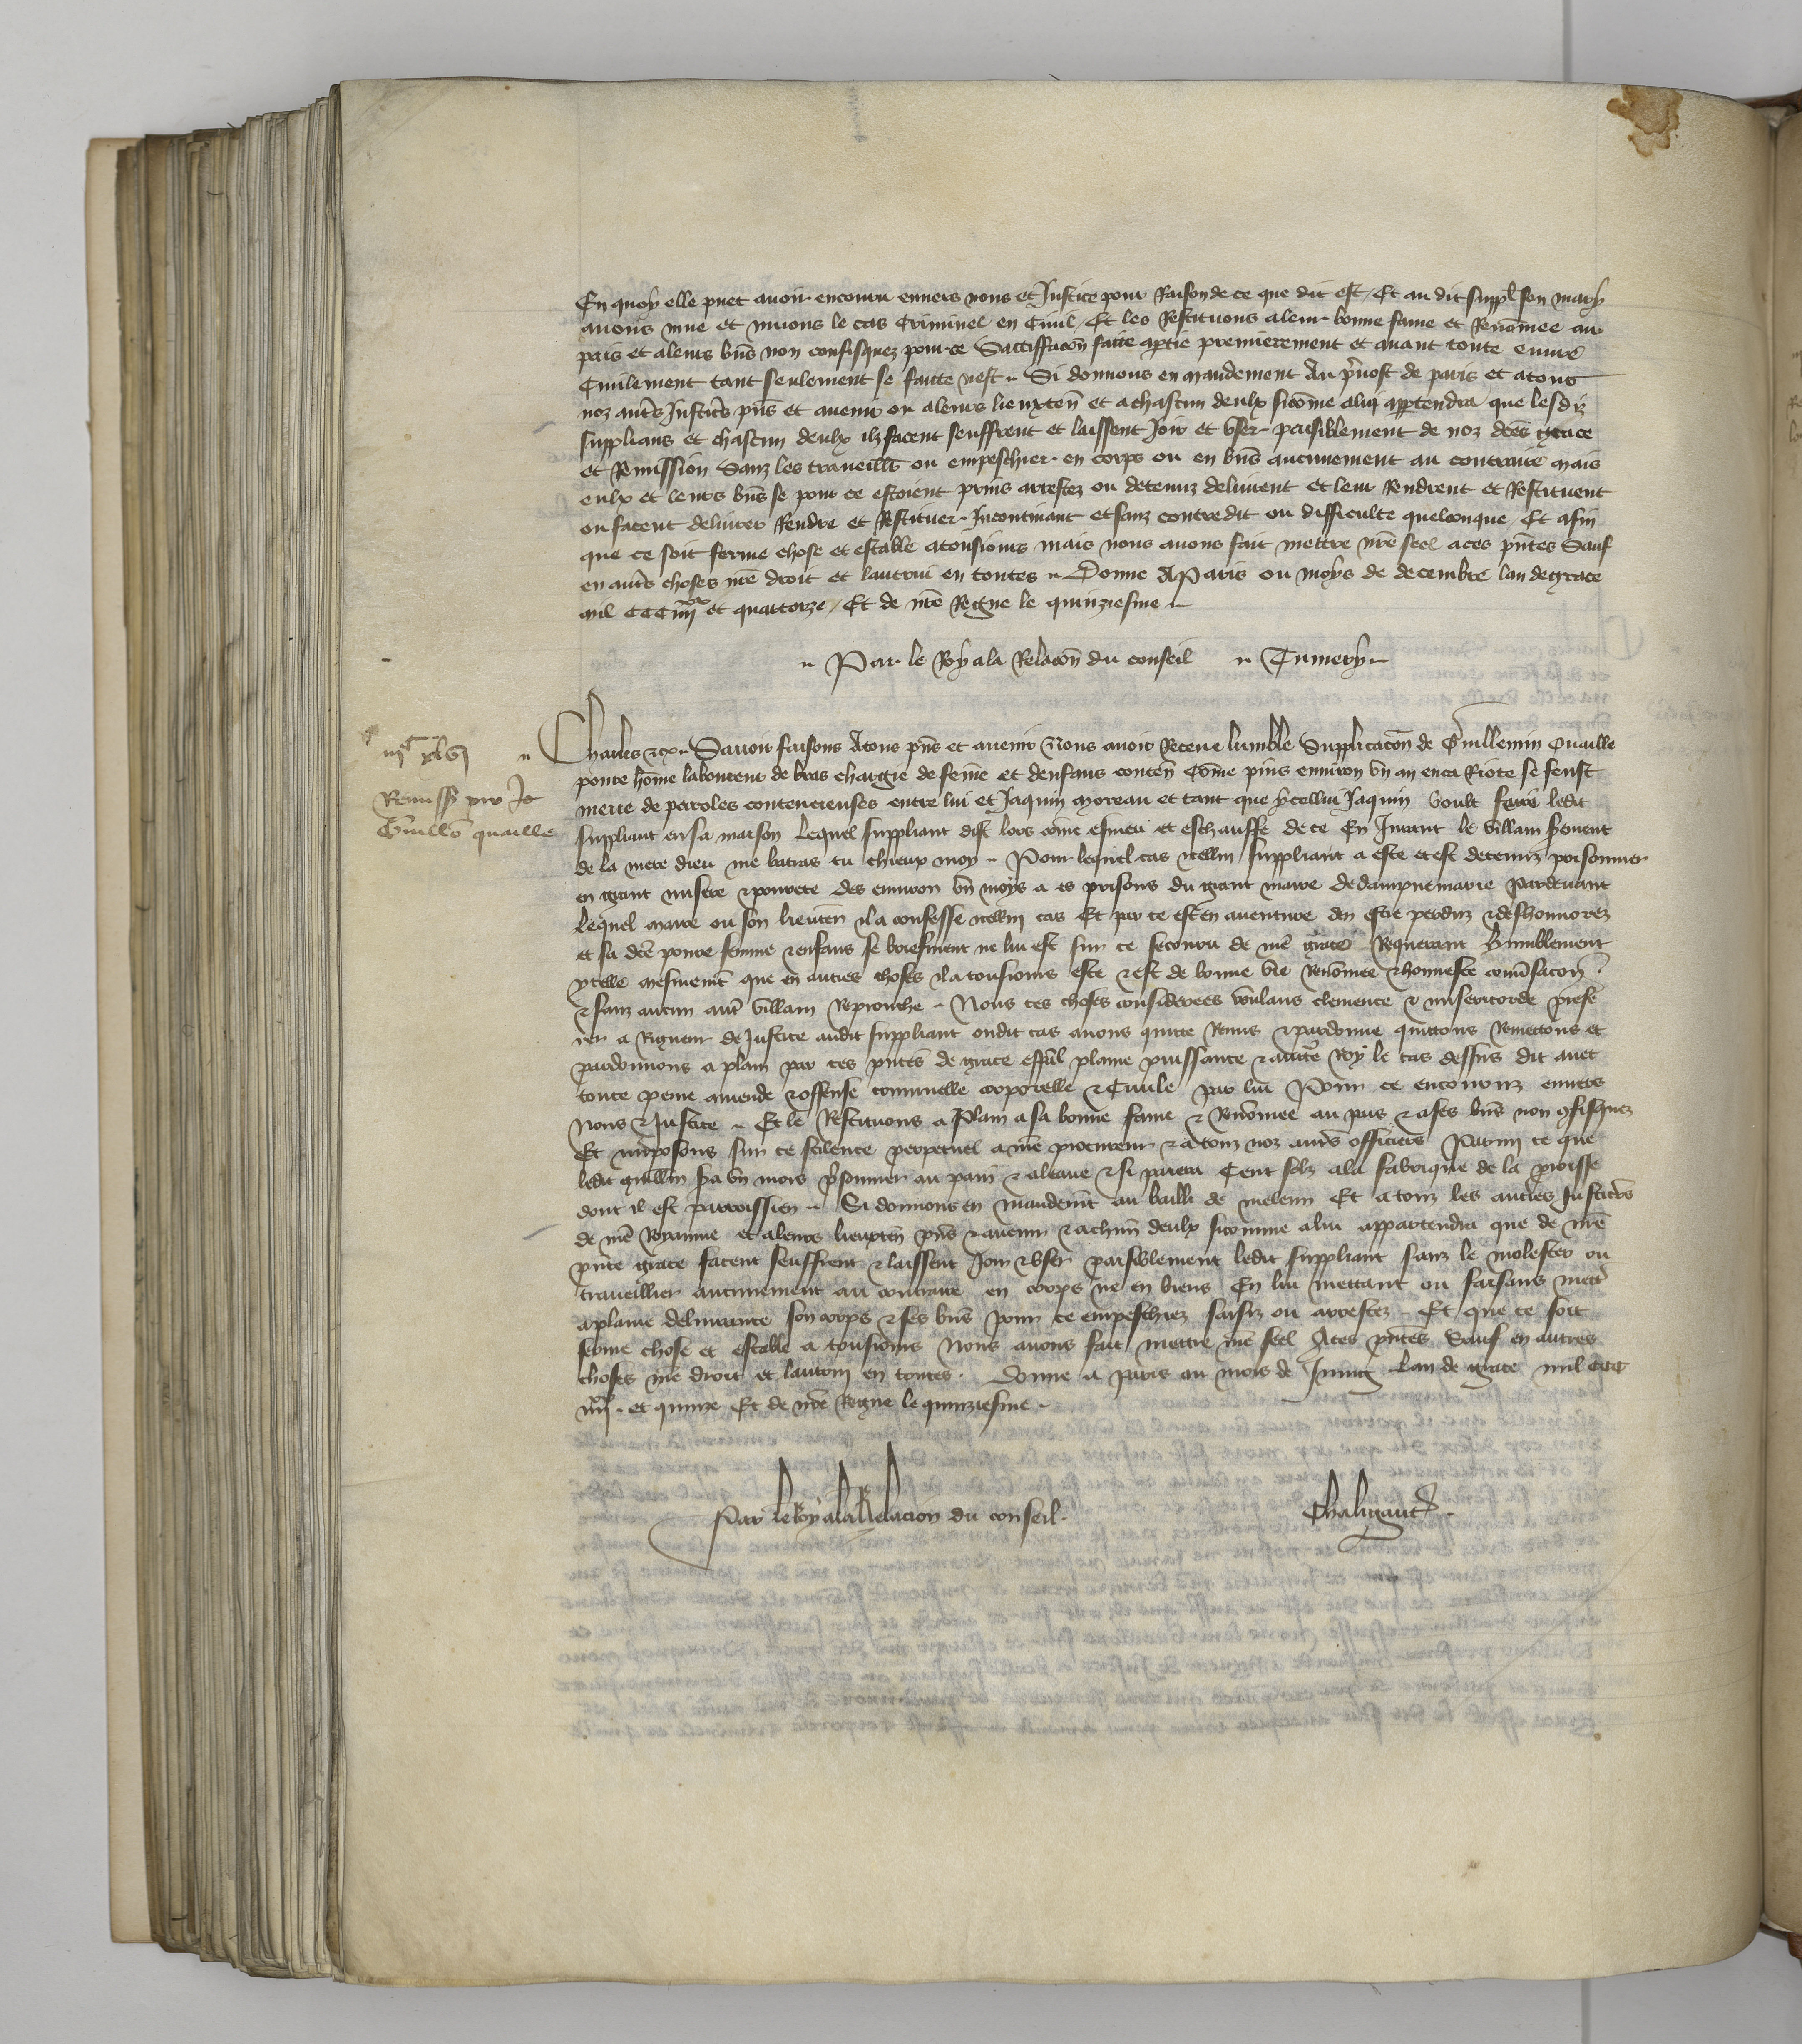 En quoy elle puet auoir encouru enuers nous et Justice pour Raison de ce que dit est / Et au dit suppl̃ son mary
auons mue et muons le cas Criminel en Ciuil / Et les Restituons a leur bonne fame et Renōmee au
pais et a leurs biẽs non confisquez pour ce Sattiffacõn faicte aptie premierement et auant toute euure
Ciuilement tant seulement se faicte nest ~ Si donnons en mandement Au p̃uost de paris et a tous
noz autr̃s Justicr̃s pñs et auenir ou a leurs lieuxteñ et a chascun deulx sicõme a luy apptendra que lesdiz
supplians et chascun deulx ilz facent seuffrent et laissent Joir et vser paisiblement de noz dc̃es grace
et Remission Sanz les traueillr̃ ou empeschier en corps ou en biẽs aucunement au contraire mais
eulx et leurs biẽs se pour ce estoient prins arrestez ou detenuz deliurent et leur Rendrent et Restituent
ou facent deliurer Rendre et Restituer Incontinant et sanz contredit ou difficulte quelconque Et afin
que ce soit ferme chose et estable a tousiours mais nous auons fait mettre nr̃e seel a ces pñtes Sauf
en autr̃s choses nr̃e droit et lautrui en toutes ~ Donne A Paris ou moys de decembre lan de grace
mil CCC iiii^xx et quattorze / Et de nr̃e Regne le quinziesme ~
~ Par le Roy a la Relacõn du conseil ~ Cumery ~
iii^c xlvi
Remiss pro Jo
Guill̃o quaille
Charles &cx ~ Sauoir faisons A tous pñs et auenir Nous auoir Receue lumble Supplicacõn de Guillemin Quaille
poure hõme laboureur de bras chargie de fẽme et denfans conteñ Cõme puis enuiron vn an enca Riote se feust
meue de paroles contencieuses entre lui et Jaquin moreau et tant que ycellui Jaquin voult ferir ledit
suppliant en sa maison Lequel suppliant dist lors cõme esmeu et eschauffe de ce En Jurant le villain serment
de la mere dieu me batras tu chieux moy ~ Pour lequel cas icellui suppliant a este et est detenuz prisonnier
en grant misere & pourete des enuiron vn moys a es prisons du grant maire de dampnemarie Pardeuant
Lequel maire ou son lieuteñ il a confesse icellui cas Et par ce est en auenture den estre perduz & deshonnorez
et sa dc̃e poure femme & enfans se briefment ne lui est sur ce secouru de nr̃e grace Requerant humblement
ycelle mesmemẽt que en autres choses il a tousiours este & est de bonne vie Renõmee & honneste conũsacõn
& sanz aucun autr̃ villain Reprouche ~ Nous ces choses considerees voulans clemence & misericorde prefe
rer a Rigueur de Justice audit suppliant oudit cas auons quitte Remis & pardonne quittons Remettons et
pardonnons a plain par ces pñtes de grace esp̃al plaine puissance & aucto^te Roy^l le cas dessus dit auec
toute peine amende & offense criminelle corporelle & Ciuile par lui Pour ce encouruz enuers
Nous & Justice ~ Et le Restituons a Plain a sa bonne fame & Renõmee au pais & a ses biẽs non ꝯfisquez
Et imposons sur ce scilence perpetuel a nr̃e procureur & a touz noz autr̃s officiers Parmi ce que
ledit guillm̃ sera vn mois p̃sonnier au pain & a leaue & si paiera Cent solz a la fabrique de la p̃roisse
dont il est parroissien ~ Si donnons en mandemẽt au bailli de meleun Et a touz les autres Justicr̃s
de nr̃e Royaume et a leurs lieuxteñ pñs & auenir & a chũn deulx sicomme a lui appartendra que de nr̃e
pñte grace facent seuffrent & laissent Joir & vser paisiblement ledit suppliant sanz le molester ou
traueillier aucunement au contraire en corps ne en biens En lui mettant ou faisans mettr̃
a plaine deliurance son corps & ses biẽs pour ce empeschiez saisiz ou arrestez ~ Et que ce soit
ferme chose et estable a tousiours Nous auons fait mettre nr̃e seel A ces pñtes Sauf en autres
choses nr̃e droit et lautrui en toutes. Donne a Paris ou mois de Juing Lan de grace mil CCC
iiii^xx et quinze Et de nr̃e Regne le quinziesme ~
Par le Roy a la Relacion du conseil. Chaligaut.